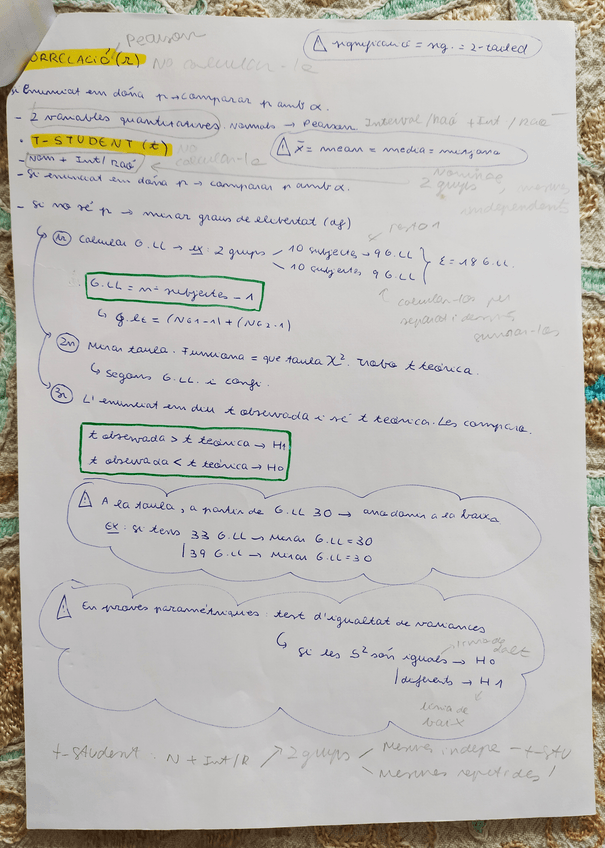 Pearson
⚠ significació = sig. = 2-tailed
ORRELACIÓ (r) No calcular-la
si enunciat em dóna p → comparar p amb α.
- 2 variables quantitatives. Normals → Pearson Interval/Raó + Int/Raó
• T-STUDENT (t) No calcular-la
⚠ x̄ = mean = media = mitjana
Nom + Int/Raó
- Si enunciat em dóna p → comparar p amb α.
Nominal 2 grups, mesures independents
- Si no sé p → mirar graus de llibertat (df)
resto 1
1r Calcular G.LL → ex: 2 grups 10 subjectes → 9 G.LL
10 subjectes 9 G.LL
Σ = 18 G.LL.
G.LL = nº subjectes - 1
calcular-los per separat i després sumar-los
↳ g.ll = (NG1-1) + (NG2-1)
2n Mirar taula. Funciona = que taula X². Trobo t teòrica.
↳ segons G.LL. i confi.
3r L'enunciat em diu t observada i sé t teòrica. Les comparo.
t observada > t teòrica → H1
t observada < t teòrica → H0
⚠ A la taula, a partir de G.LL 30 → anar a la baixa
Ex: si tens 33 G.LL → mirar G.LL = 30
39 G.LL → mirar G.LL = 30
⚠ En proves paramètriques: test d'igualtat de variances
↳ si les S² són iguals → H0
línia de dalt
/ diferents → H1
línia de baix
t-student: N + Int/R → 2 grups Mesura indepe - t-stu
Mesures repetides